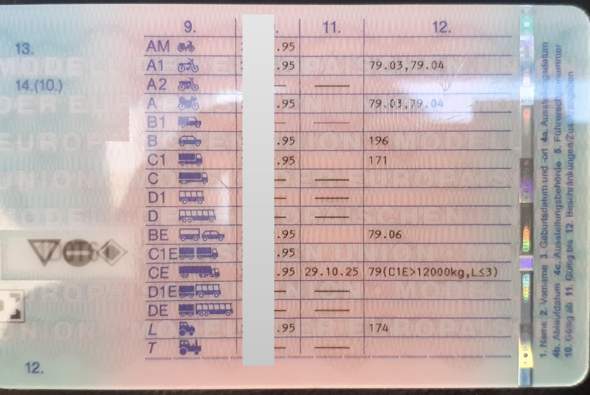 9. 11. 12.
13.
14.(10.)
AM .95
A1 .95 79.03,79.04
A2 — —
A .95 79.03,79.04
B1 — —
B .95 196
C1 .95 171
C — —
D1 — —
D — —
BE .95 79.06
C1E .95
CE .95 29.10.25 79(C1E>12000kg,L≤3)
D1E — —
DE — —
L .95 174
T — —
12.
1. Name 2. Vorname 3. Geburtsdatum und -ort 4a. Ausstellungsdatum
4b. Ablaufdatum 4c. Ausstellungsbehörde 5. Führerscheinnummer
10. Gültig ab 11. Gültig bis 12. Beschränkungen